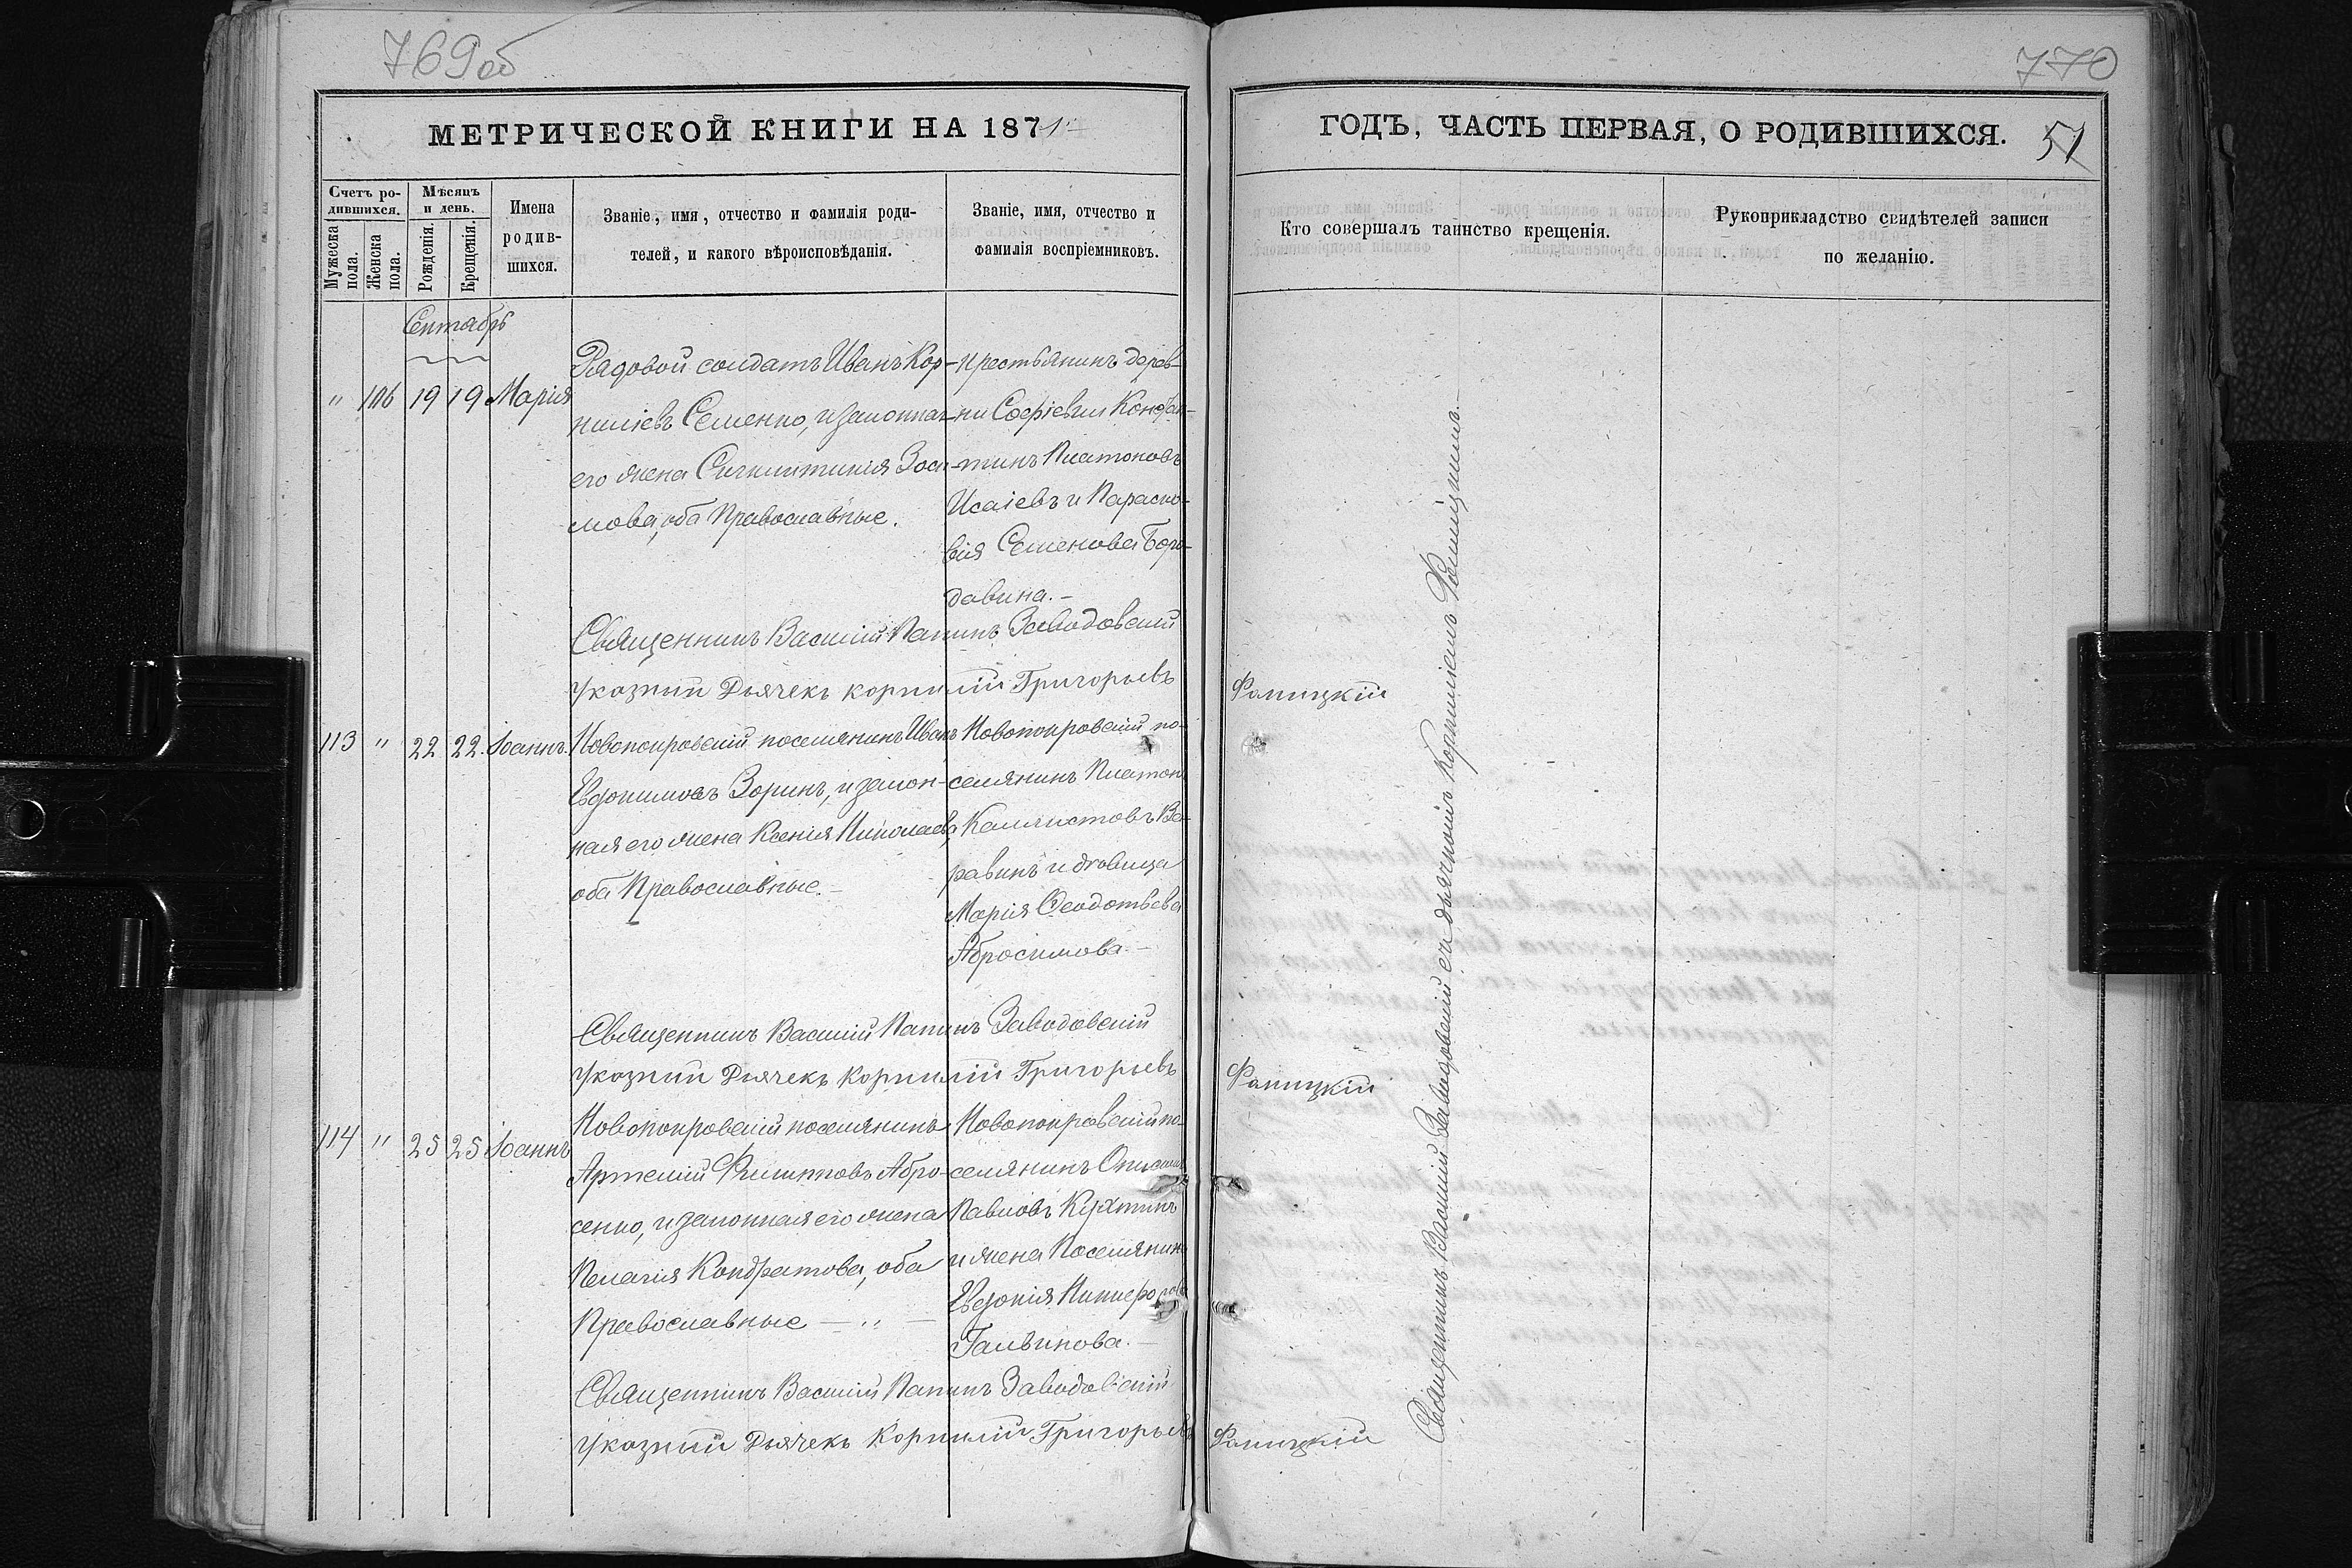 769об
МЕТРИЧЕСКОЙ КНИГИ НА 1871
Счетъ родившихся.
Мѣсяцъ и день.
Мужеска пола.
Женска пола.
Рожденія.
Крещенія.
Имена
родив-
шихся.
Званіе, имя, отчество и фамилія роди-
телей, и какого вѣроисповѣданія.
Званіе, имя, отчество и
фамилія воспріемниковъ.
Сентябрь
" 106 19 19 Марія
Рядовой солдатъ Иванъ Кор-
ниліевъ Семенко, и законная
его жена Сигклитикія Зоси-
мова, оба Православные.
крестьянинъ дерев-
ни Софіевки Констан-
тинъ Платоновъ
Исаіевъ и Параско-
вія Семенова Боро-
давкина.-
Священникъ Василій Папинъ Заводовскій
Указный Дьячекъ Корнилій Григорьевъ
113 " 22 22. Іоаннъ.
Новопокровскій поселянинъ Иванъ
Евдокимовъ Зоринъ, и закон-
ная его жена Ксенія Николаева,
оба Православные.-
Новопокровскій по-
селянинъ Платонъ
Калистовъ
и дѣвица
Марія Феодотьева
Абросимова.-
Священникъ Василій Папинъ Заводовскій
Указный Дьячекъ Корнилій Григорьевъ
114 " 25 25 Іоаннъ
Новопокровскій поселянинъ
Артемій Филиповъ Абро-
сенко, и законная его жена
Пелагія Кондратова, оба
Православные
Новопокровскій по-
селянинъ
Павловъ Кухтинъ
и жена Поселянина
Евдокія Никифорова
Гальвикова.-
Священникъ Василій Папинъ Заводовскій
Указный Дьячекъ Корнилій Григорьевъ
770
ГОДЪ, ЧАСТЬ ПЕРВАЯ, О РОДИВШИХСЯ.
51
Кто совершалъ таинство крещенія.
Рукоприкладство свидѣтелей записи
по желанію.
Фалицкій
Фалицкій
Фалицкій
Священникъ Василій Заводовскій съ дьячкомъ Корниліемъ Фалицкимъ.-